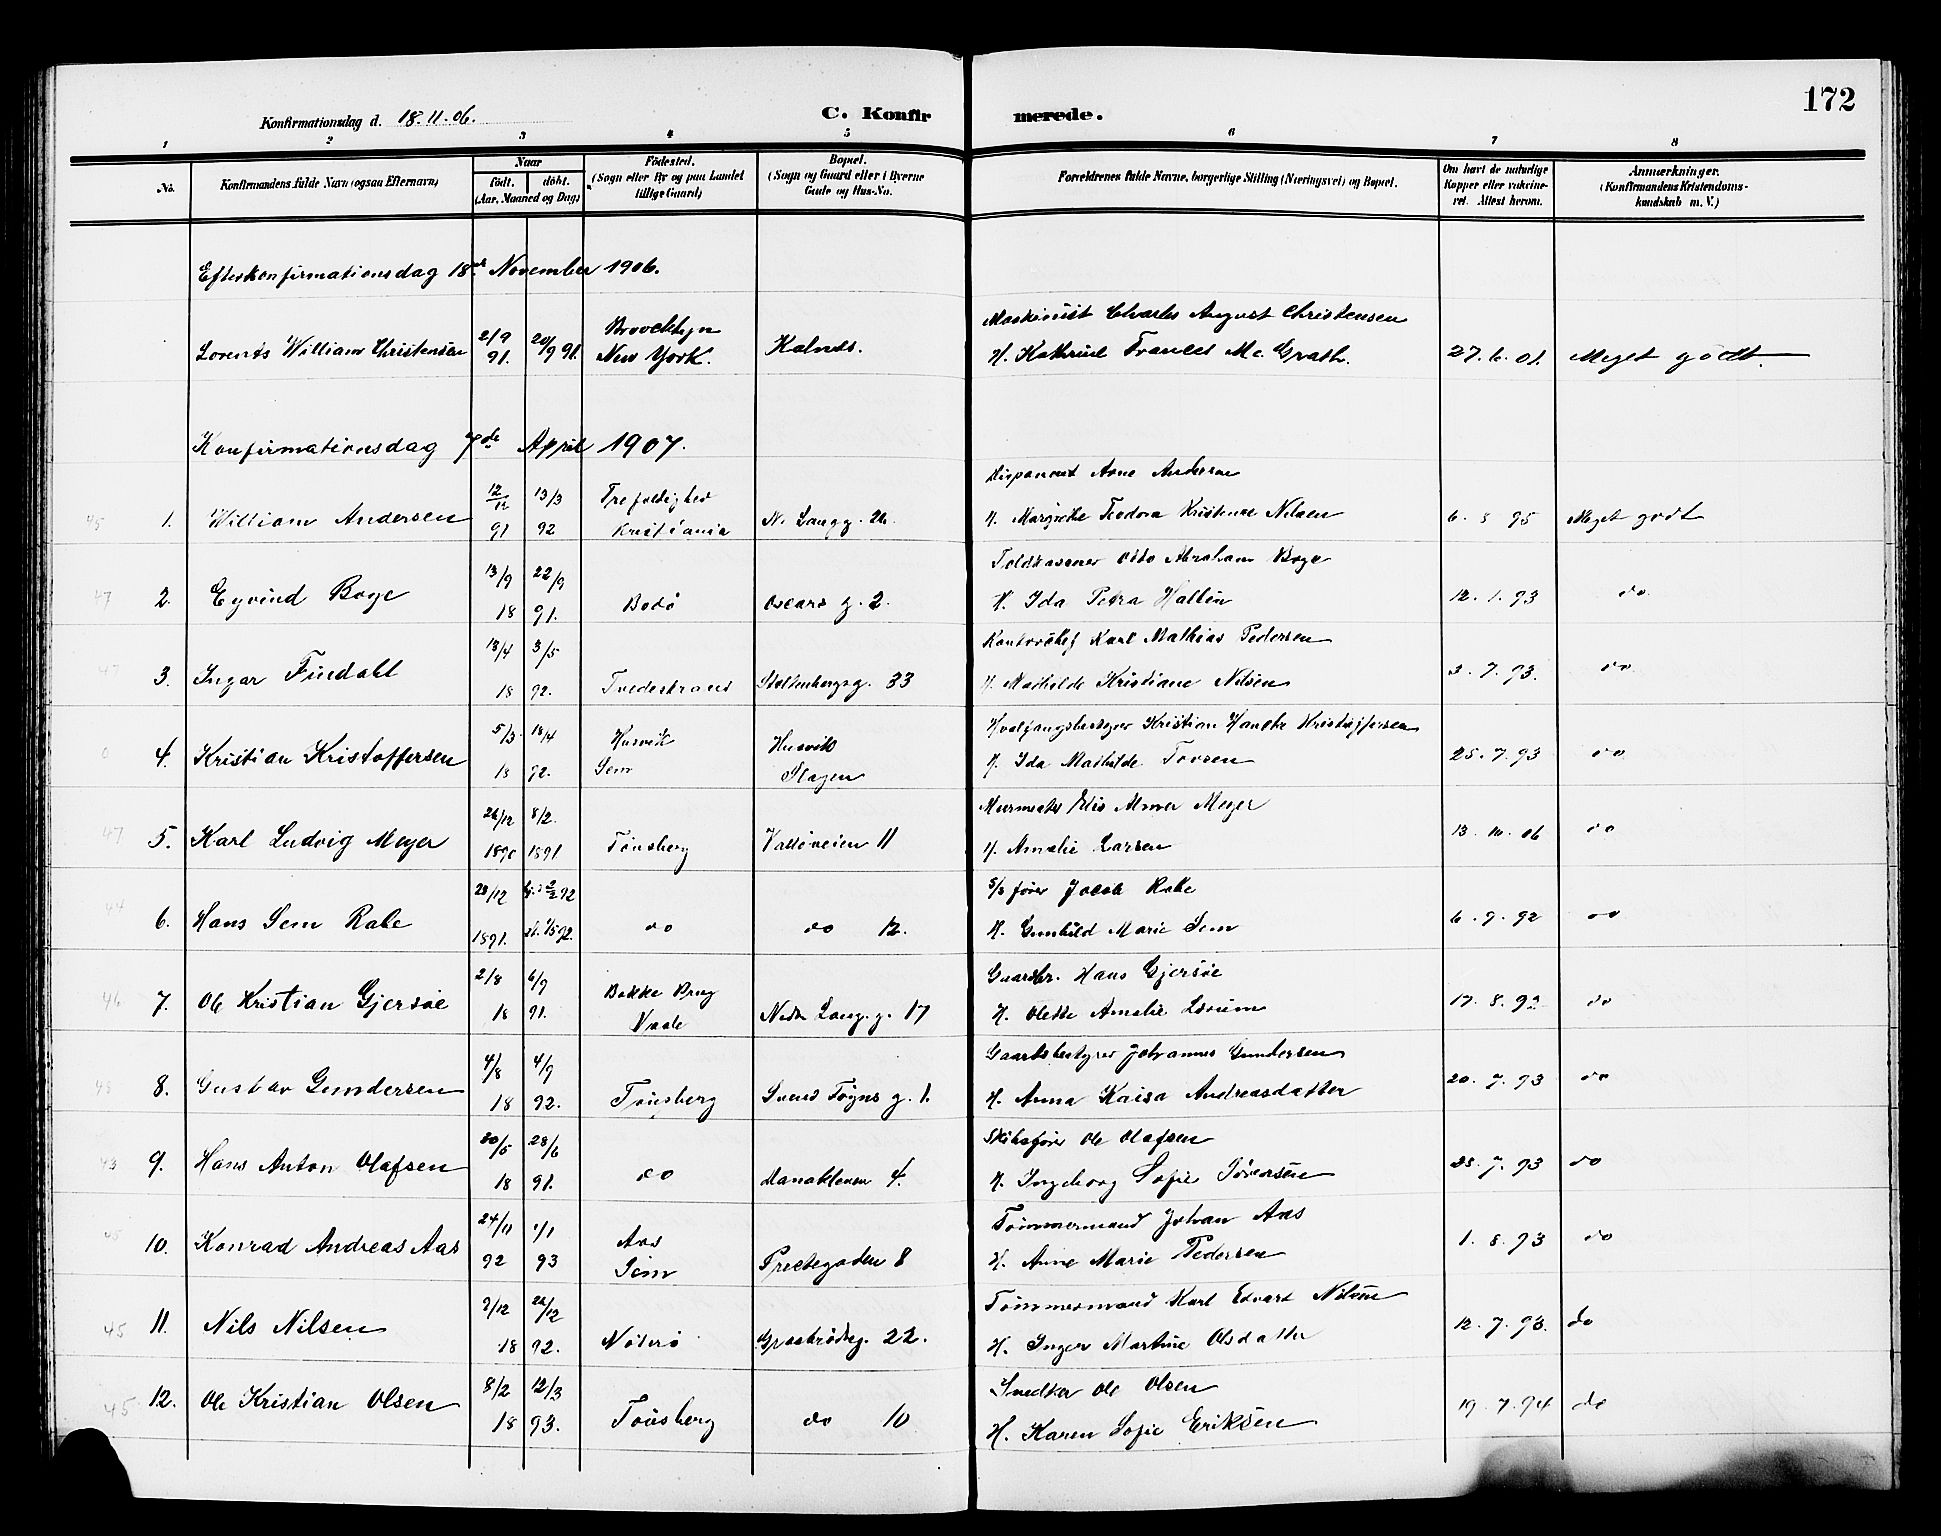 172
Konfirmationsdag d. 18.11.06.
C. Konfirmerede.
1 2 3 4 5 6 7 8
No.
Konfirmandens fulde Navn (ogsaa Efternavn)
Naar
födt. döbt.
(Aar, Maaned og Dag)
Födested.
(Sogn eller By og paa Landet
tillige Gaard)
Bopæl.
(Sogn og Gaard eller i Byerne
Gade og Hus-No.
Forældrenes fulde Navne, borgerlige Stilling (Næringsvei) og Bopæl.
Om havt de naturlige
Kopper eller vakcine-
ret. Attest herom.
Anmærkninger.
(Konfirmandens Kristendoms-
kundskab m. V.)
Efterkonfirmationsdag 18de November 1906.
Lorents William Christensen 2/9 91. 20/9 91. Broocklyn
New York. Kalnes. Maskinist Charles August Christensen
H. Kathrine Frances Mc. Grath. 27.6.01. Meget godt.
Konfirmationsdag 7de April 1907.
1. William Andersen 12/12 91 13/3 92 Trefoldighed
Kristiania N. Langg. 26. Disponent Arne Andersen
H. Margrethe Teodora Kristense Nilsen 6. 3 95 Meget godt
2. Eyvind Boge 13/9 22/9 18 91. Bodö Oscars g. 2. Toldkaserer Otto Abraham Boge
H. Ida Petra Hallin 12. 1. 93 do
3. Ingar Findahl 13/4 3/5 18 92. Tvedestrand Stoltenbergsg. 33 Kontorchef Karl Mathias Pedersen
H. Mathilde Kristiane Nilsen 3. 7. 93. do
4. Kristian Kristoffersen 5/3 18/4 18 92. Husvik
Sem Husvik
Slagen Hvalfangstbestyrer Kristian Hancke Kristoffersen
H. Ida Mathilde Torsen 25. 7. 93 do
5. Karl Ludvig Meyer 26/12 1890 8/2. 1891 Tönsberg Valløveien 11 Murmester Elis Almer Meyer
H. Amalie Larsen 13. 10. 06 do
6. Hans Sem Rabe 28/12 1891. do do 12. S/S förer Jacob Rabe
H. Gunhild Marie Sem 6. 9. 92 do
7. Ole Kristian Gjersöe 2/8 6/9 18 91. Bakke Brug
Vaale Nedre Lang. g. 17 Gaardbr. Hans Gjersöe
H. Olette Amalie 17. 8. 92 do
8. Gustav Gundersen 4/8 4/9 18 92. Tönsberg Svend Föyns g. 1. Gaardsbestyrer Johannes Gundersen
H. Anna Kaisa Andreasdatter 20. 7. 93 do
9. Hans Anton Olafsen 30/5 28/6 18 91. do 4. Skibsförer Ole Olafsen
H. Ingeborg Sofie Iversen 28. 7. 93 do
10. Konrad Andreas Aas 24/11 92 1/1 93 Aas
Sem Prestegaden 8 Tömmermand Johan Aas
H. Anne Marie Pedersen 1. 8. 93 do
11. Nils Nilsen 9/12 26/12 18 92. Nöterö Græsbrödreg. 22. Tömmermand Karl Edvart Nilsen
H. Inger Martine Olsdatter 12. 7. 93. do
12. Ole Kristian Olsen 8/2 12/3 18 93. Tönsberg do 10 Snedker Ole Olsen
H. Karen Sofie Eriksen 19. 7. 94 do